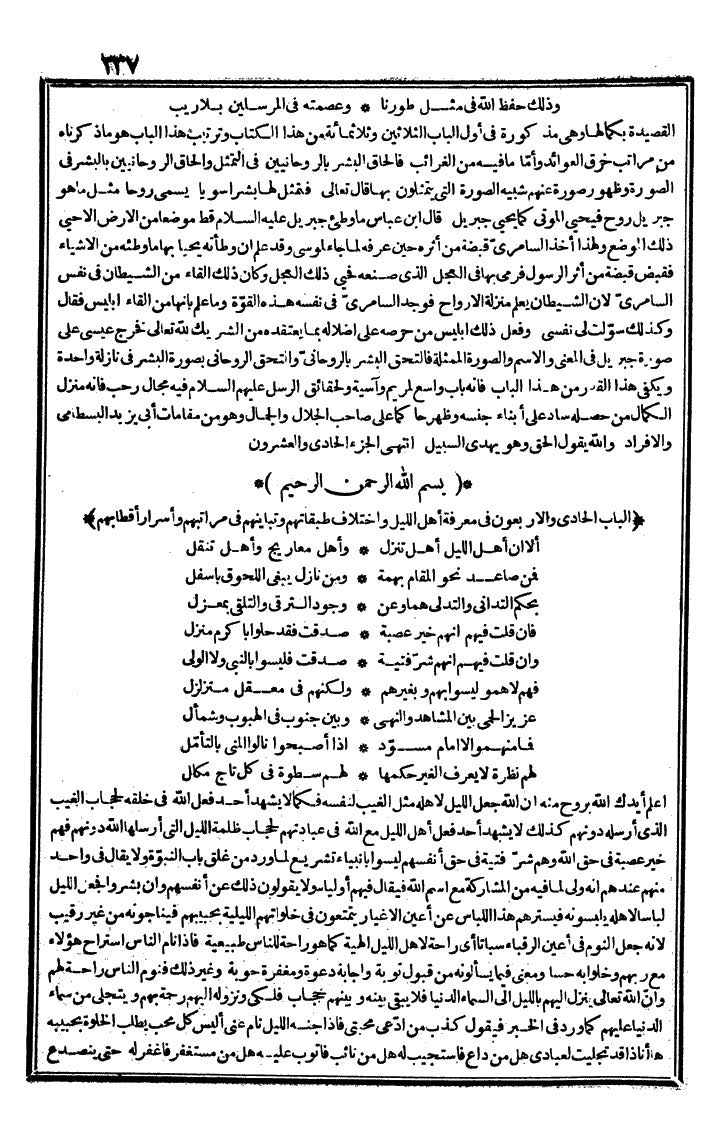 ٢٣٧
وذلك حفظ الله فى مثل طورنا * وعصمته فى المرسلين بلا ريب
القصيدة بكمالها وهى مذكورة فى أول الباب الثلاثين وثلاثمائة من هذا الكتاب وترتيب هذا الباب هو ماذكرناه
من مراتب خرق العوائد وأمّا مافيه من الغرائب فالحاق البشر بالروحانيين فى التمثل والحاق الروحانيين بالبشر فى
الصورة وظهور صورة عنهم شبيه الصورة التى يتمثلون بها قال تعالى فتمثل لها بشرا سويا يسمى روحا مثل ماهو
جبريل روح فيحيى الموتى كما يحيى جبريل قال ابن عباس ماوطئ جبريل عليه السلام قط موضعا من الارض الاحيى
ذلك الموضع ولهذا أخذ السامرىّ قبضة من أثره حين عرفه لما جاء لموسى وقد علم ان وطأته يحيا بها ماوطئه من الاشياء
فقبض قبضة من أثر الرسول فرمى بها فى العجل الذى صنعه فيى ذلك العجل وكان ذلك القاء من الشيطان فى نفس
السامرىّ لان الشيطان يعلم منزلة الارواح فوجد السامرىّ فى نفسه هذه القوّة وماعلم بانها من القاء ابليس فقال
وكذلك سوّلت لى نفسى وفعل ذلك ابليس من حرصه على اضلاله بما يعتقده من الشريك لله تعالى نخرج عيسى على
صورة جبريل فى المعنى والاسم والصورة الممثلة فالتحق البشر بالروحانىّ والتحق الروحانى بصورة البشر فى نازلة واحدة
ويكفى هذا القدر من هذا الباب فانه باب واسع لمريم وآسية ولحقائق الرسل عليهم السلام فيه مجال رحب فانه منزل
الكمال من حصله ساد على أبناء جنسه وظهر حاكما على صاحب الجلال والجمال وهو من مقامات أبى يزيد البسطامى
والافراد والله يقول الحق وهو يهدى السبيل انتهى الجزء الحادى والعشرون
*( بسم الله الرحمن الرحيم )*
﴿الباب الحادى والاربعون فى معرفة أهل الليل واختلاف طبقاتهم وتباينهم فى مراتبهم وأسرار أقطابهم﴾
ألا ان أهل الليل أهل تنزل * وأهل معاريج وأهل تنقل
فمن صاعد نحو المقام بهمة * ومن نازل يبغى اللحوق باسفل
بحكم التدانى والتدلى هما وعن * وجود الترقى والتلقى بمعزل
فان قلت فيهم انهم خير عصبة * صدقت فقد حلوا با كرم منزل
وان قلت فيهم انهم شرّ فتية * صدقت فليسوا بالنبى ولا الولى
فهم لاهمو ليسوا بهم وبغيرهم * ولكنهم فى معقل متزلزل
عزيز الحمى بين المشاهد والنهى * وبين جنوب فى الهبوب وشمأل
فما منهمو الا امام مسوّد * اذا أصبحوا نالوا المنى بالتأمّل
لهم نظرة لا يعرف الغير حكمها * لهم سطوة فى كل تاج مكال
اعلم أيدك الله بروح منه ان الله جعل الليل لاهله مثل الغيب لنفسه فكما لا يشهد أحد فعل الله فى خلقه لحجاب الغيب
الذى أرسله دونهم كذلك لا يشهد أحد فعل أهل الليل مع الله فى عبادتهم لحجاب ظلمة الليل التى أرسلها الله دونهم فهم
خير عصبة فى حق الله وهم شرّ فتية فى حق أنفسهم ليسوا بانبياء تشريع لما ورد من غلق باب النبوّة ولا يقال فى واحد
منهم عندهم انه ولى لما فيه من المشاركة مع اسم الله فيقال فيهم أولياء ولا يقولون ذلك عن أنفسهم وان بشروا فجعل الليل
لباسا لاهله يلبسونه فيسترهم هذا اللباس عن أعين الاغيار يتمتعون فى خلواتهم الليلية بحبيبهم فيناجونه من غير رقيب
لانه جعل النوم فى أعين الرقباء سباتا أى راحة لاهل الليل الهية كما هو راحة للناس طبيعية فاذا نام الناس استراح هؤلاء
مع ربهم وخلوا به حسا ومعنى فيما يسألونه من قبول توبة واجابة دعوة ومغفرة حوبة وغير ذلك فنوم الناس راحة لهم
وان الله تعالى ينزل اليهم بالليل الى السماء الدنيا فلا يبقى بينه وبينهم حجاب فلكى ونزوله اليهم رحمة بهم ويتجلى من سماء
الدنيا عليهم كما ورد فى الخبر فيقول كذب من ادّعى محبتى فاذا جنه الليل نام عنى أليس كل محب يطلب الخلوة بحبيبه
هاأنا ذا قد تجليت لعبادى هل من داع فاستجيب له هل من تائب فاتوب عليه هل من مستغفر فاغفر له حتى ينصدع